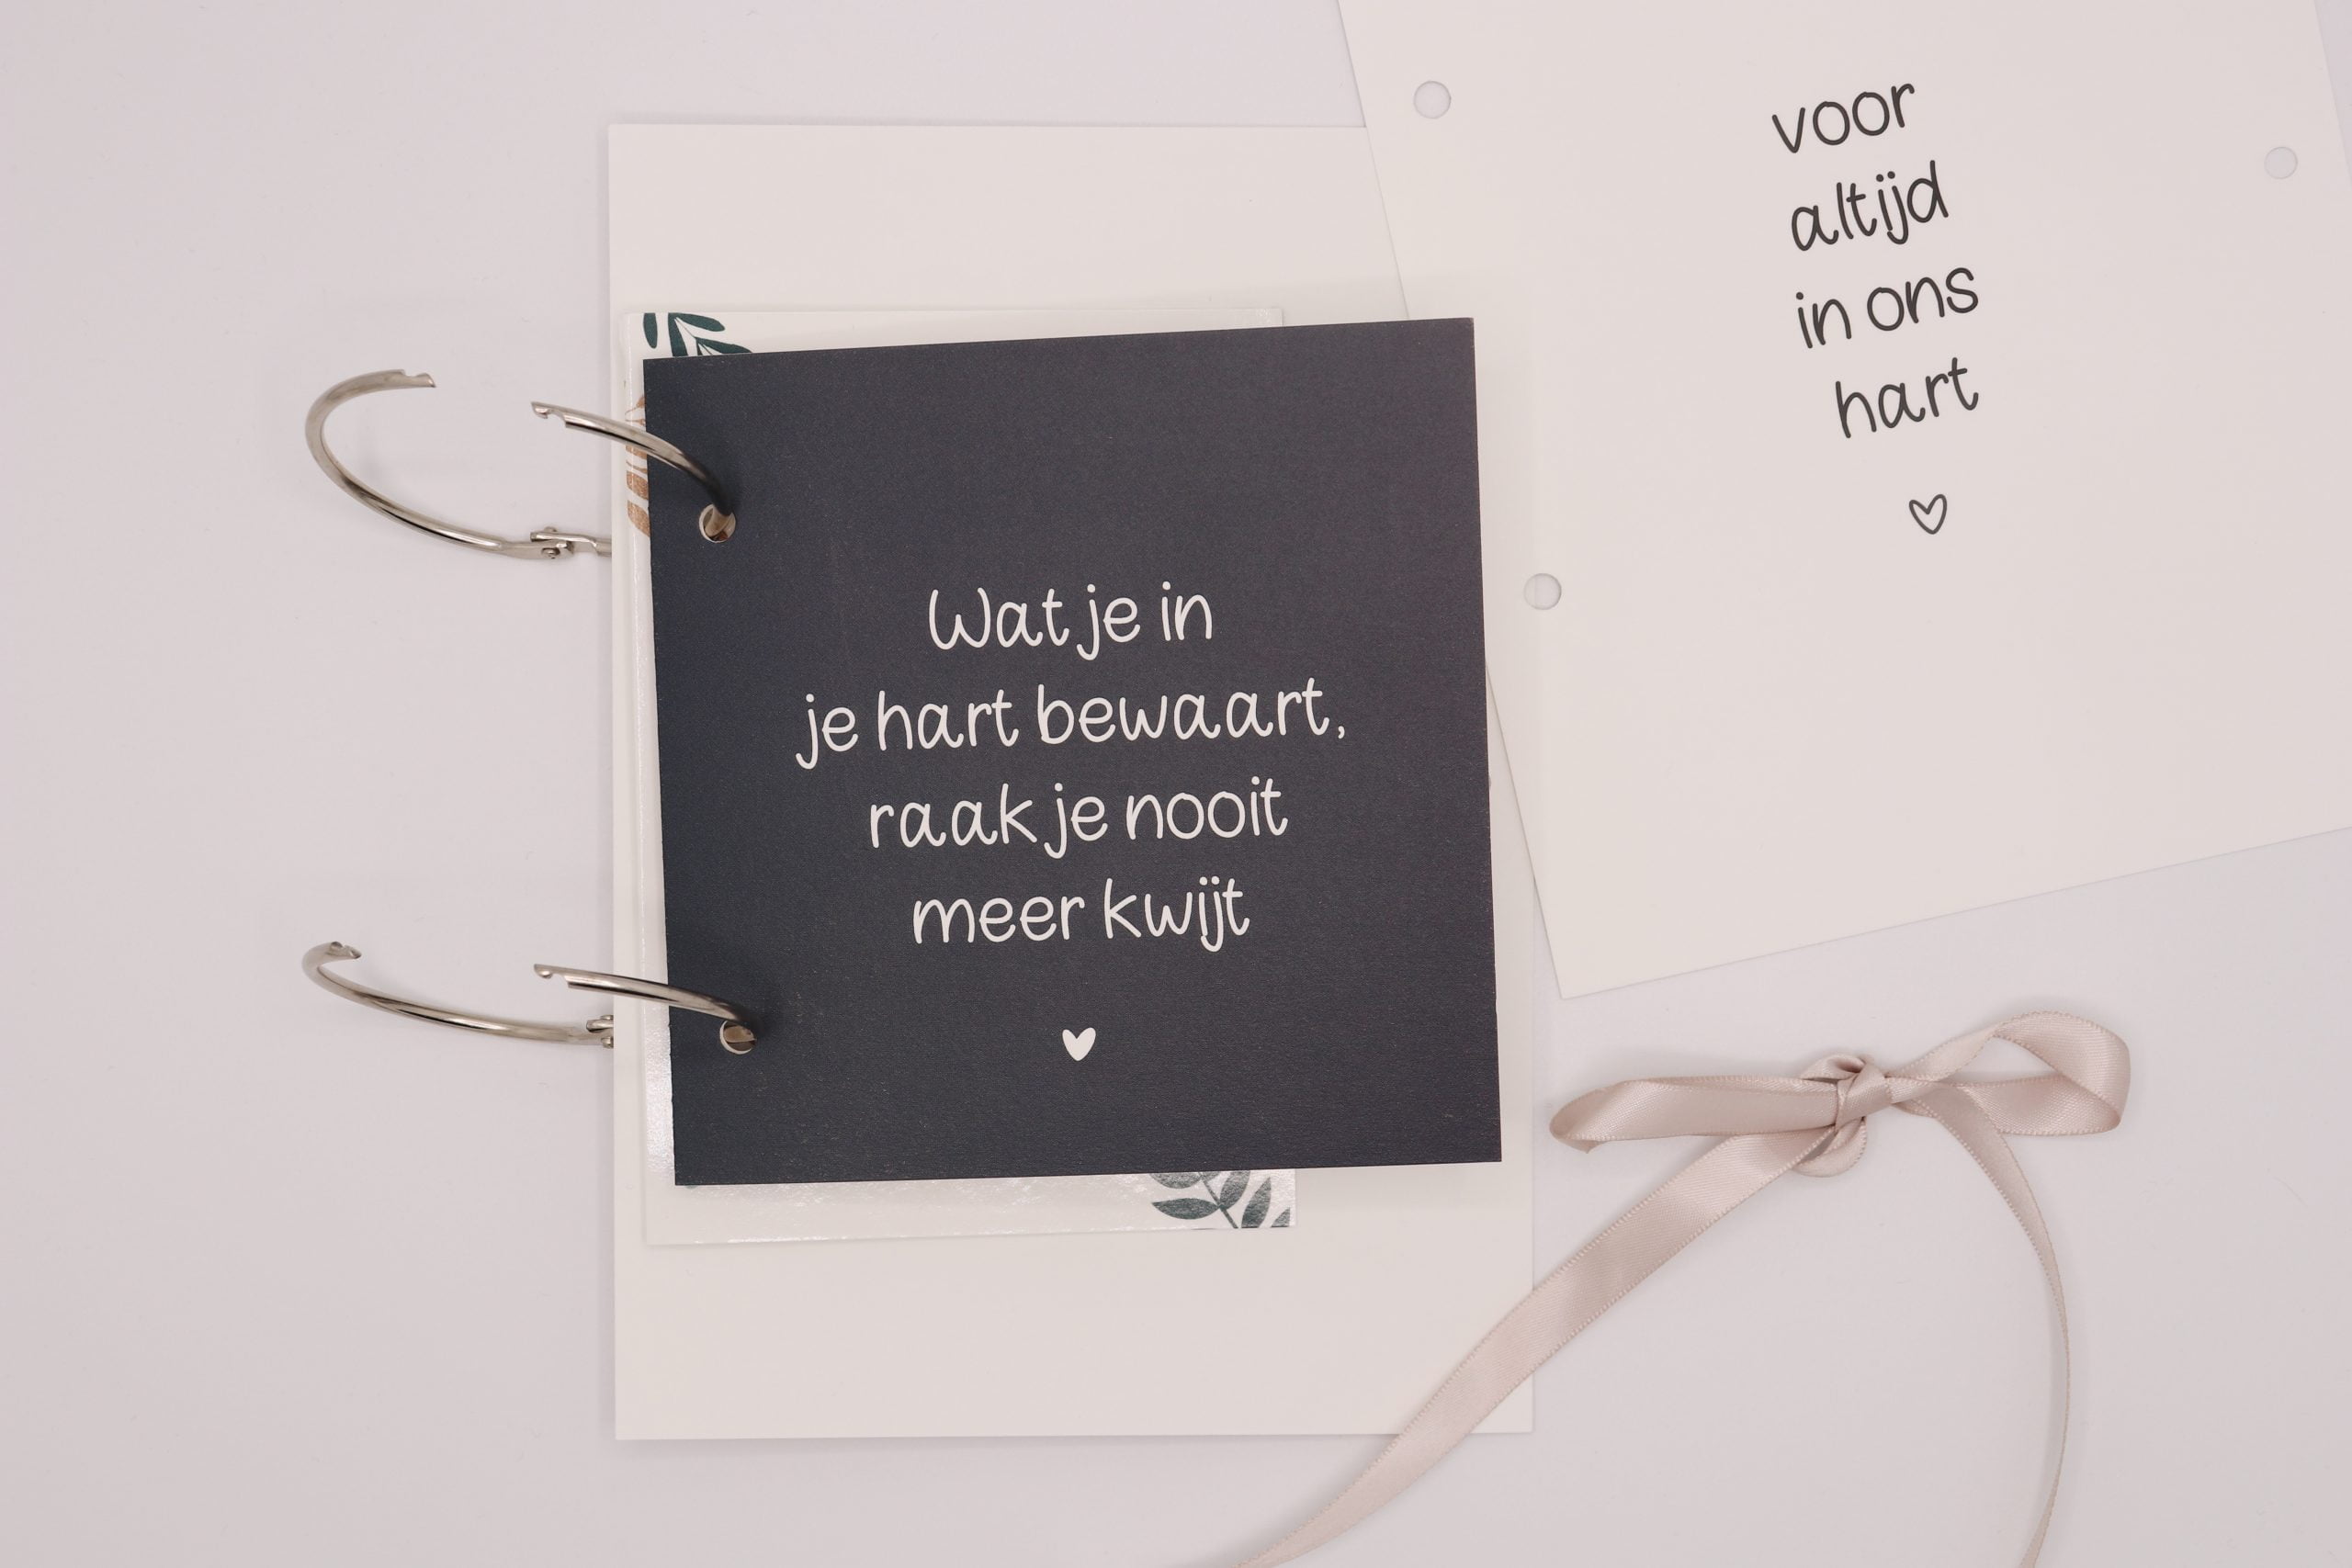 Wat je in
je hart bewaart,
raak je nooit
meer kwijt
voor
altijd
in ons
hart